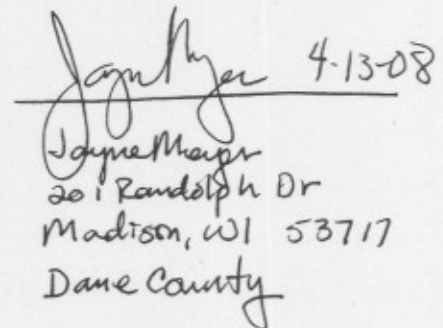 Jayne Meyer 4-13-08
Jayne Meyer
201 Randolph Dr
Madison, WI 53717
Dane County